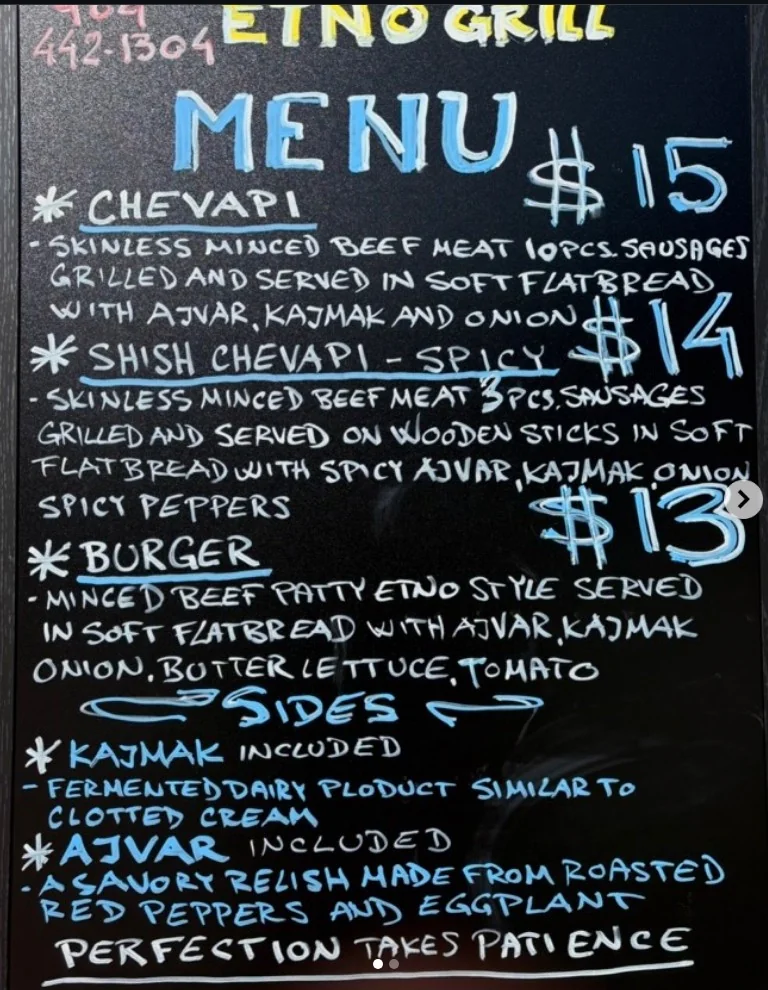 904
442-1304 ETNO GRILL
MENU
$15
* CHEVAPI
- SKINLESS MINCED BEEF MEAT 10PCS. SAUSAGES
GRILLED AND SERVED IN SOFT FLATBREAD
WITH AJVAR, KAJMAK AND ONION
$14
* SHISH CHEVAPI - SPICY
- SKINLESS MINCED BEEF MEAT 3PCS. SAUSAGES
GRILLED AND SERVED ON WOODEN STICKS IN SOFT
FLATBREAD WITH SPICY AJVAR, KAJMAK, ONION
SPICY PEPPERS
$13
* BURGER
- MINCED BEEF PATTY ETNO STYLE SERVED
IN SOFT FLATBREAD WITH AJVAR, KAJMAK
ONION, BUTTER LETTUCE, TOMATO
SIDES
* KAJMAK INCLUDED
- FERMENTED DAIRY PLODUCT SIMILAR TO
CLOTTED CREAM
* AJVAR INCLUDED
- A SAVORY RELISH MADE FROM ROASTED
RED PEPPERS AND EGGPLANT
PERFECTION TAKES PATIENCE